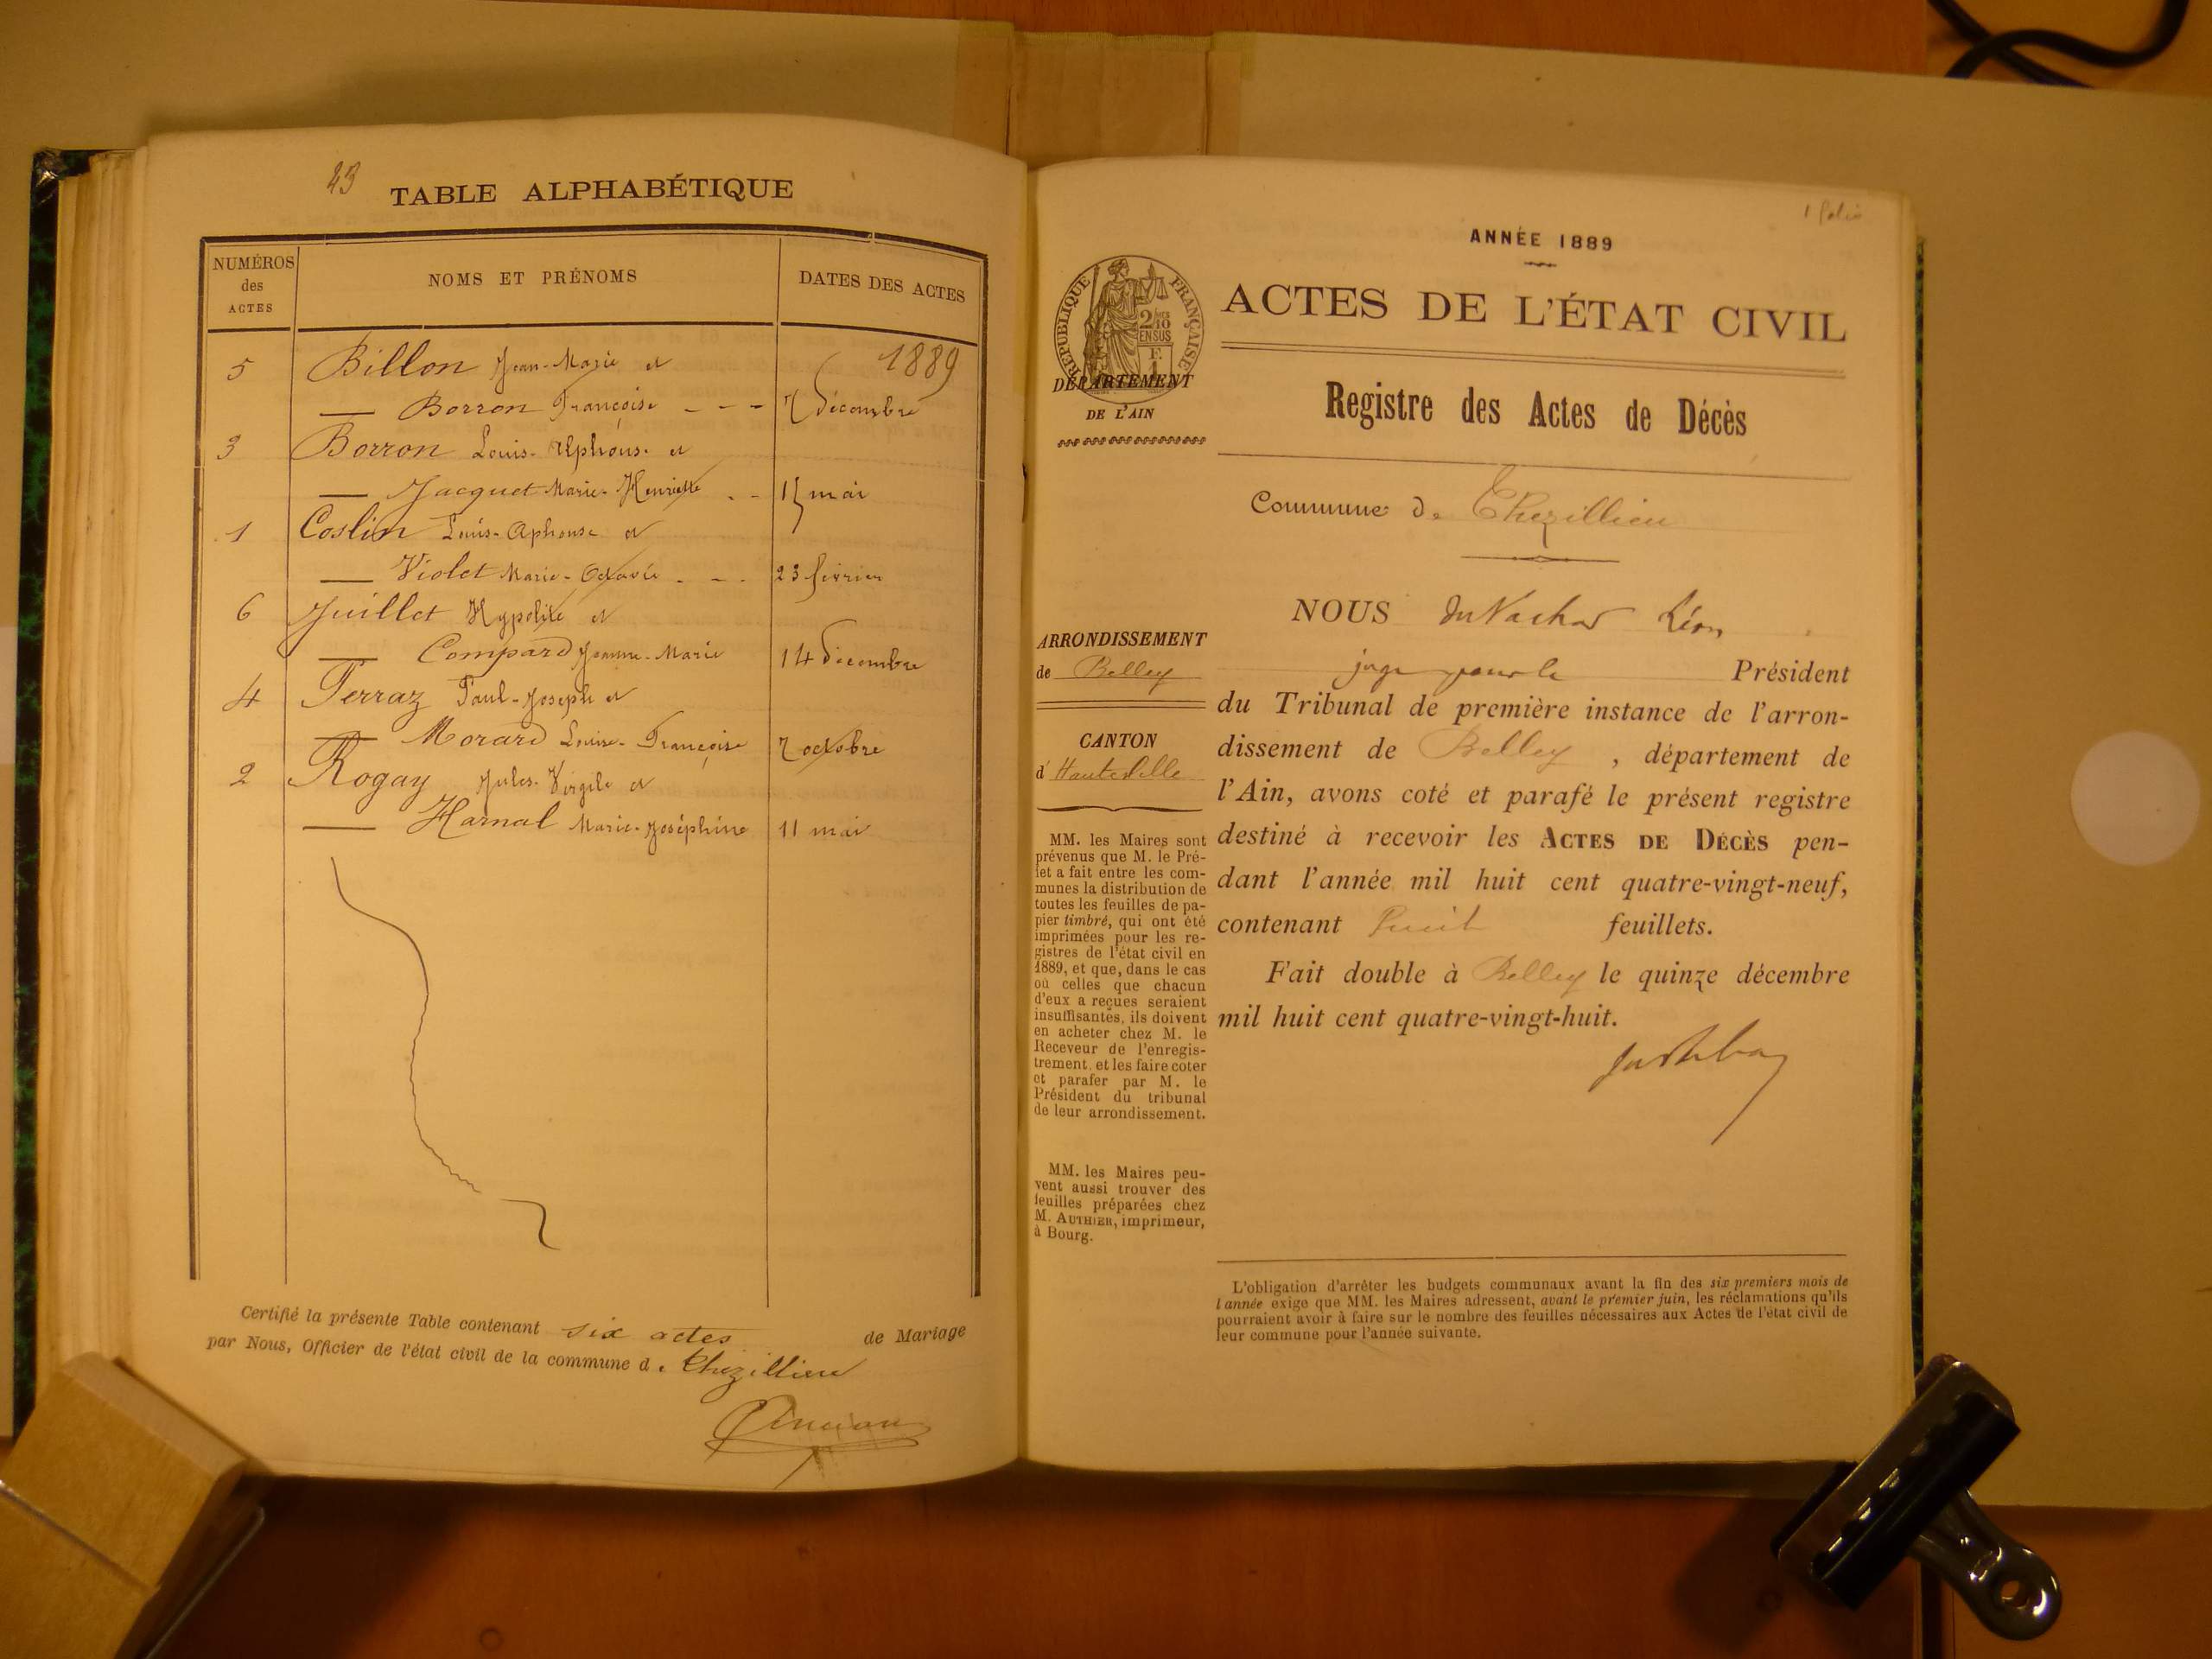 23
TABLE ALPHABÉTIQUE
NUMÉROS des ACTES
NOMS ET PRÉNOMS
DATES DES ACTES
1889
5 Billon Jean-Marie et
— Borron Françoise - - - 7 décembre
3 Borron Louis-Alphonse et
— Jacquet Marie-Henriette - - 15 mai
1 Coslin Louis-Aphonse et
— Violet Marie-Octavie - - - 23 février
6 Juillet Hypolite et
— Compard Jeanne-Marie 14 décembre
4 Perraz Paul-Joseph et
— Morard Louise-Françoise 7 octobre
2 Rogay Jules-Virgile et
— Harnal Marie-Joséphine 11 mai
Certifié la présente Table contenant six actes de Mariage
par Nous, Officier de l'état civil de la commune de Thézillieu
1 folio
ANNÉE 1889
ACTES DE L'ÉTAT CIVIL
RÉPUBLIQUE FRANÇAISE
DÉPARTEMENT
DE L'AIN
Registre des Actes de Décès
Commune de Thézillieu
NOUS Léon
juge pour le Président
du Tribunal de première instance de l'arron-
dissement de Belley, département de
l'Ain, avons coté et parafé le présent registre
destiné à recevoir les ACTES DE DÉCÈS pen-
dant l'année mil huit cent quatre-vingt-neuf,
contenant huit feuillets.
Fait double à Belley le quinze décembre
mil huit cent quatre-vingt-huit.
ARRONDISSEMENT
de Belley
CANTON
d'Hauteville
MM. les Maires sont
prévenus que M. le Pré-
fet a fait entre les com-
munes la distribution de
toutes les feuilles de pa-
pier timbré, qui ont été
imprimées pour les re-
gistres de l'état civil en
1889, et que, dans le cas
où celles que chacun
d'eux a reçues seraient
insuffisantes, ils doivent
en acheter chez M. le
Receveur de l'enregis-
trement, et les faire coter
et parafer par M. le
Président du tribunal
de leur arrondissement.
MM. les Maires peu-
vent aussi trouver des
feuilles préparées chez
M. AUTHIER, imprimeur,
à Bourg.
L'obligation d'arrêter les budgets communaux avant la fin des six premiers mois de
l'année exige que MM. les Maires adressent, avant le premier juin, les réclamations qu'ils
pourraient avoir à faire sur le nombre des feuilles nécessaires aux Actes de l'état civil de
leur commune pour l'année suivante.